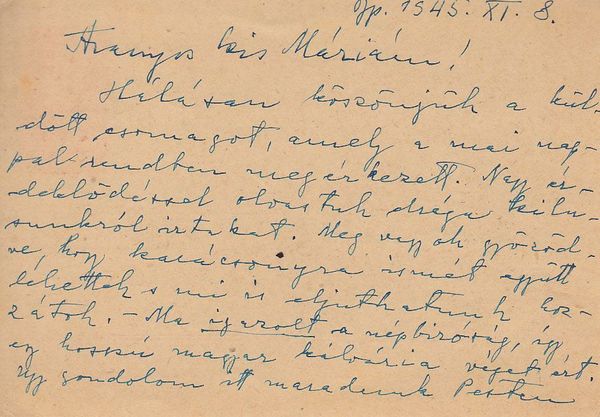 Bp. 1945. XI. 8.
Aranyos kis Máriám!
Hálásan köszönjük a kül-
dött csomagot, amely a mai nap-
pal rendben megérkezett. Nagy ér-
deklődéssel olvastuk drága
sunkról írtakat. Meg vagyok győződ-
ve, hogy karácsonyra ismét együtt
lehettek s mi is eljuthatunk hoz-
zátok. - Ma igazolt a népbíróság, így
ez hosszú magyar kálvária véget ért.
Úgy gondolom itt maradunk Pesten